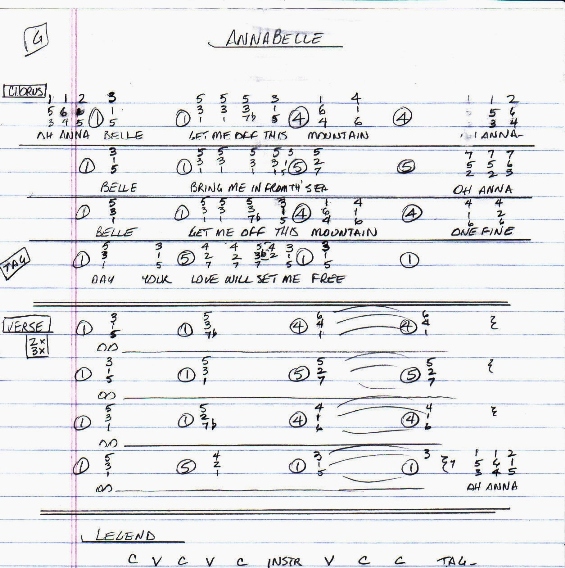 G
ANNABELLE
CHORUS
1 1 2 3 5 5 5 3 1 4 1 1 2
5 6 6 1 3 3 3 1 6 1 5 6
3 4 5 5 1 1 7b 5 4 6 3 4
1 1 4 4
AH ANNA BELLE LET ME OFF THIS MOUNTAIN ANNA-
5 5 5 5 3 5 7 7 7
3 3 3 3 1 2 5 5 6
1 1 1 1 5 7 2 2 3
1 1 5 5
BELLE BRING ME IN FROM TH' SEA OH ANNA
5 5 5 5 5 1 4 4 4
3 3 3 3 3 6 1 1 2
1 1 1 7b 1 4 6 6 6
1 1 4 4
BELLE LET ME OFF THIS MOUNTAIN ONE FINE
TAG
5 3 4 4 5 4 3 3
3 1 2 2 3b 2 1 1
1 5 7 7 7 5 5
1 5 1 1
DAY YOUR LOVE WILL SET ME FREE
VERSE
2x
3x
3 5 6 6
1 3 4 4
5 7b 1 1
1 1 4 4
OO
3 5 5 5
1 3 2 2
5 1 7 7
1 1 5 5
OO
5 5 4 4
3 2 1 1
1 7b 6 6
1 1 4 4
OO
5 4 3 3 1 1 2
3 2 1 5 6 1
1 1 5 3 4 5
1 5 1 1
OO AH ANNA
LEGEND
C V C V C INSTR V C C TAG-